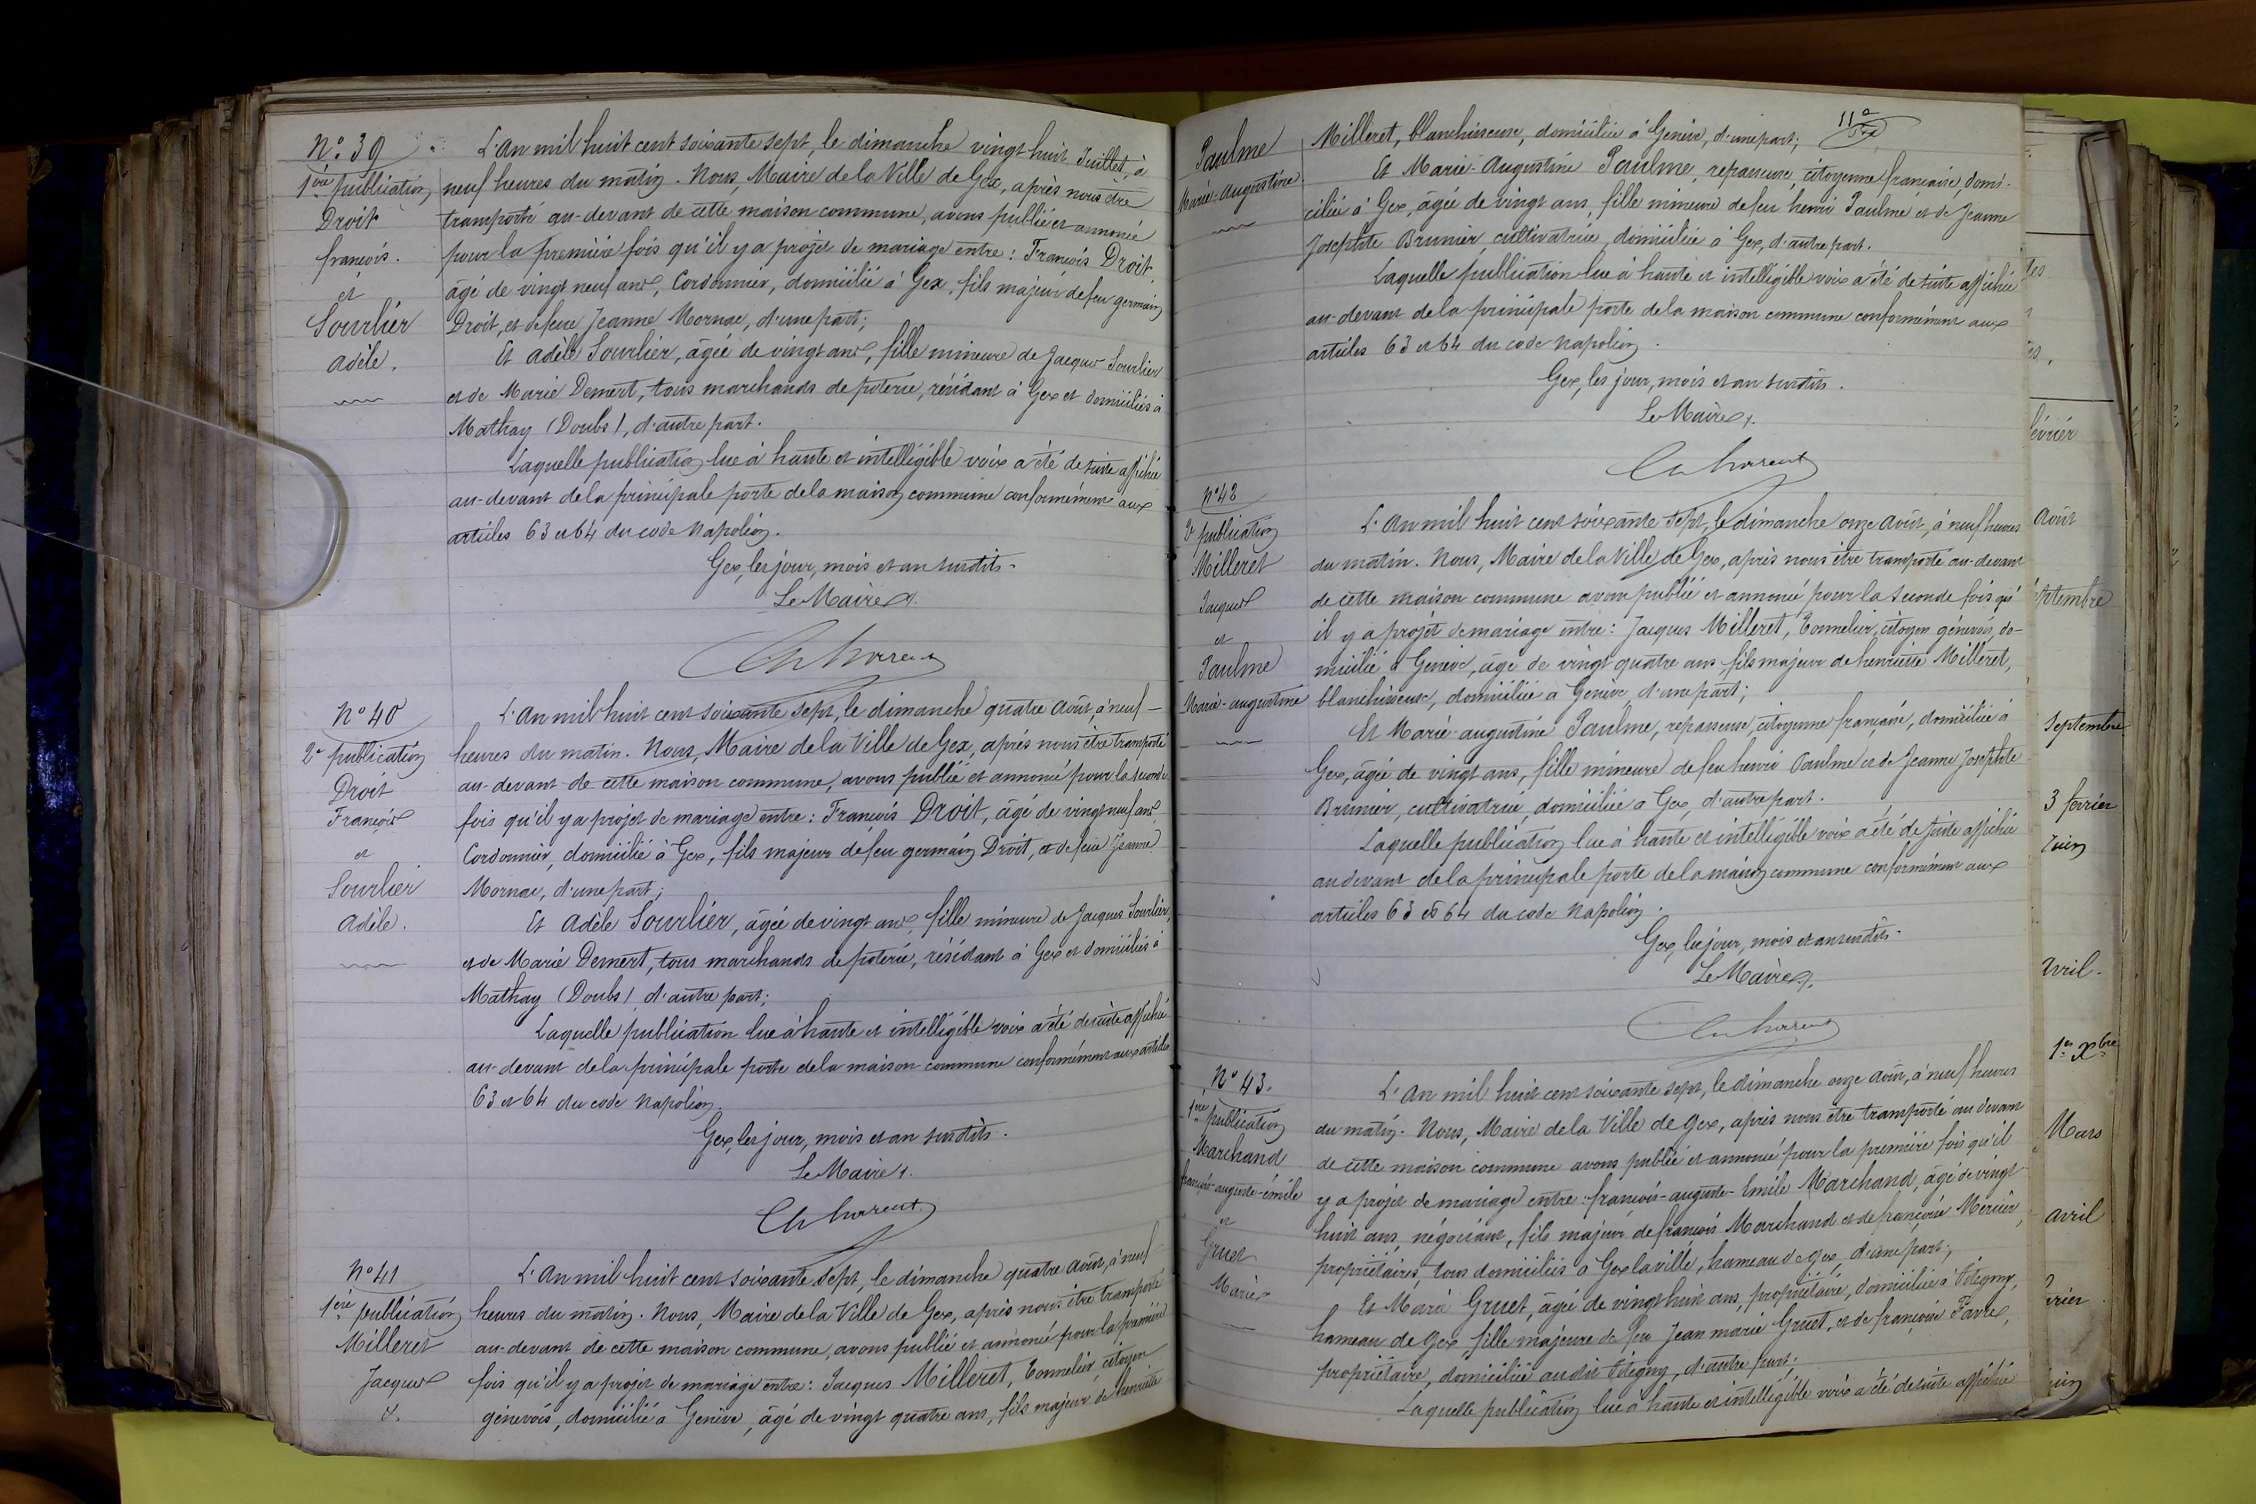 N° 39
1ère publication
Droit
françois.
et
Sourlier
adèle.
L'an mil huit cent soixante sept, le dimanche vingt huit Juillet, à
neuf heures du matin. Nous, Maire de la Ville de Gex, après nous être
transporté au-devant de cette maison commune, avons publié et annoncé
pour la première fois qu'il y a projet de mariage entre : François Droit,
âgé de vingt neuf ans, Cordonnier, domicilié à Gex, fils majeur de feu germain
Droit, et de feue Jeanne Mornac, d'une part;
Et adèle Sourlier, âgée de vingt ans, fille mineure de Jacques Sourlier
et de Marie Demert, tous marchands de poterie, résidant à Gex et domiciliés à
Mathay (Doubs), d'autre part.
Laquelle publication lue à haute et intelligible voix a été de suite affichée
au-devant de la principale porte de la maison commune conformément aux
articles 63 et 64 du code Napoléon.
Gex, les jour, mois et an susdits.
Le Maire
N° 40
2e publication
Droit
François
et
Sourlier
adèle.
L'an mil huit cent soixante sept, le dimanche quatre Août, à neuf
heures du matin. Nous, Maire de la Ville de Gex, après nous être transporté
au-devant de cette maison commune, avons publié et annoncé pour la seconde
fois qu'il y a projet de mariage entre : François Droit, âgé de vingt neuf ans,
Cordonnier, domicilié à Gex, fils majeur de feu germain Droit, et de feue Jeanne
Mornac, d'une part;
Et adèle Sourlier, âgée de vingt ans, fille mineure de Jacques Sourlier,
et de Marie Demert, tous marchands de poterie, résidant à Gex et domiciliés à
Mathay (Doubs) d'autre part;
Laquelle publication lue à haute et intelligible voix a été de suite affichée
au-devant de la principale porte de la maison commune conformément aux articles
63 et 64 du code Napoléon.
Gex, les jour, mois et an susdits.
Le Maire
N° 41
1ère publication
Milleret
Jacques
&.
L'an mil huit cent soixante sept, le dimanche quatre Août, à neuf
heures du matin. Nous, Maire de la Ville de Gex, après nous être transporté
au-devant de cette maison commune, avons publié et annoncé pour la première
fois qu'il y a projet de mariage entre : Jacques Milleret, Tonnelier, citoyen
génevois, domicilié à Genève, âgé de vingt quatre ans, fils majeur de henriette
11e
Paulme
Marie-augustine
Milleret, blanchisseuse, domiciliée à Genève, d'une part;
Et Marie-Augustine Paulme, repasseuse, citoyenne française, domi-
ciliée à Gex, âgée de vingt ans, fille mineure de feu henri Paulme et de Jeanne
Josephte Brunier cultivatrice, domiciliée à Gex, d'autre part.
Laquelle publication lue à haute et intelligible voix a été de suite affichée
au-devant de la principale porte de la maison commune conformément aux
articles 63 et 64 du code Napoléon.
Gex, les jour, mois et an susdits.
Le Maire
N° 42
2e publication
Milleret
Jacques
et
Paulme
Marie-augustine
L'an mil huit cent soixante sept, le dimanche onze Août, à neuf heures
du matin. Nous, Maire de la Ville de Gex, après nous être transporté au-devant
de cette maison commune avons publié et annoncé pour la seconde fois qu'
il y a projet de mariage entre : Jacques Milleret, Tonnelier, citoyen génevois, do-
micilié à Genève, âgé de vingt quatre ans, fils majeur de henriette Milleret,
blanchisseuse, domiciliée à Genève, d'une part;
Et Marie-augustine Paulme, repasseuse, citoyenne française, domiciliée à
Gex, âgée de vingt ans, fille mineure de feu henri Paulme et de Jeanne Josephte
Brunier, cultivatrice, domiciliée à Gex, d'autre part.
Laquelle publication lue à haute et intelligible voix a été de suite affichée
au devant de la principale porte de la maison commune conformément aux
articles 63 et 64 du code Napoléon.
Gex, les jour, mois et an susdits.
Le Maire
N° 43.
1ère publication
Marchand
françois-auguste-émile
et
Gruet
Marie
L'an mil huit cent soixante sept, le dimanche onze Août, à neuf heures
du matin. Nous, Maire de la Ville de Gex, après nous être transporté au devant
de cette maison commune avons publié et annoncé pour la première fois qu'il
y a projet de mariage entre : françois-auguste-Emile Marchand, âgé de vingt
huit ans, négociant, fils majeur de françois Marchand et de françoise Mercier,
propriétaires, tous domiciliés à Gex la ville, hameau de Gex, d'une part;
Et Marie Gruet, âgée de vingt huit ans, propriétaire, domiciliée à Pitegny,
hameau de Gex, fille majeure de feu Jean marie Gruet, et de françoise Favre,
propriétaire, domiciliée audit Pitegny, d'autre part;
Laquelle publication lue à haute et intelligible voix a été de suite affichée
Août
Septembre
3 février
Juin
Avril.
1er Xbre
Mars
avril